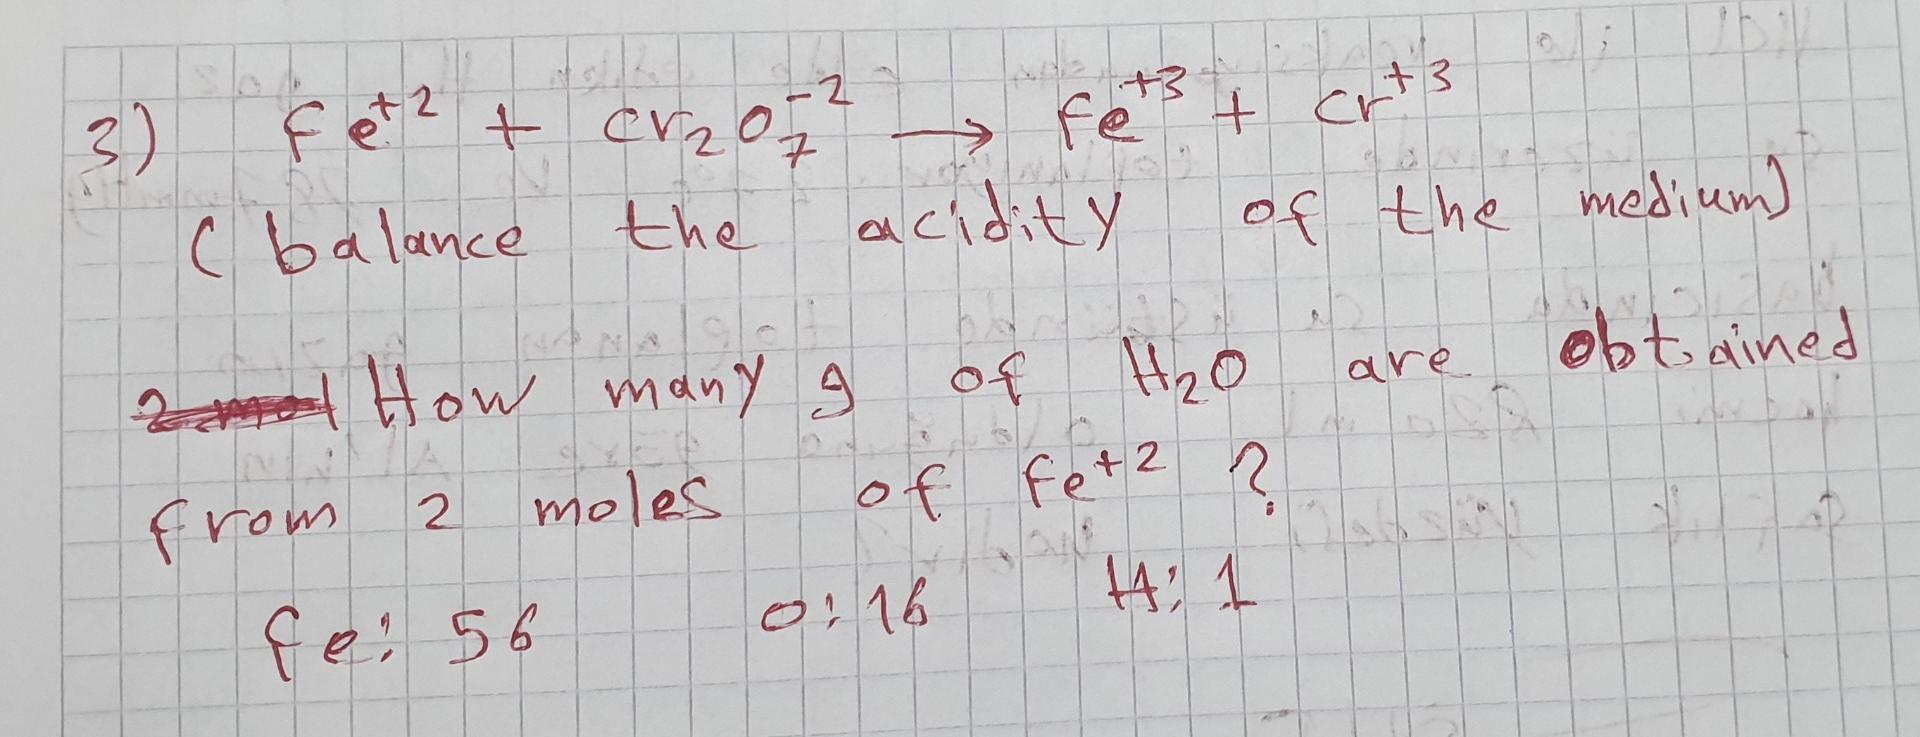 3) Fe⁺² + Cr₂O₇⁻² → Fe⁺³ + Cr⁺³
(balance the acidity of the medium)
How many g of H₂O are obtained
from 2 moles of Fe⁺² ?
Fe: 56 O: 16 H: 1